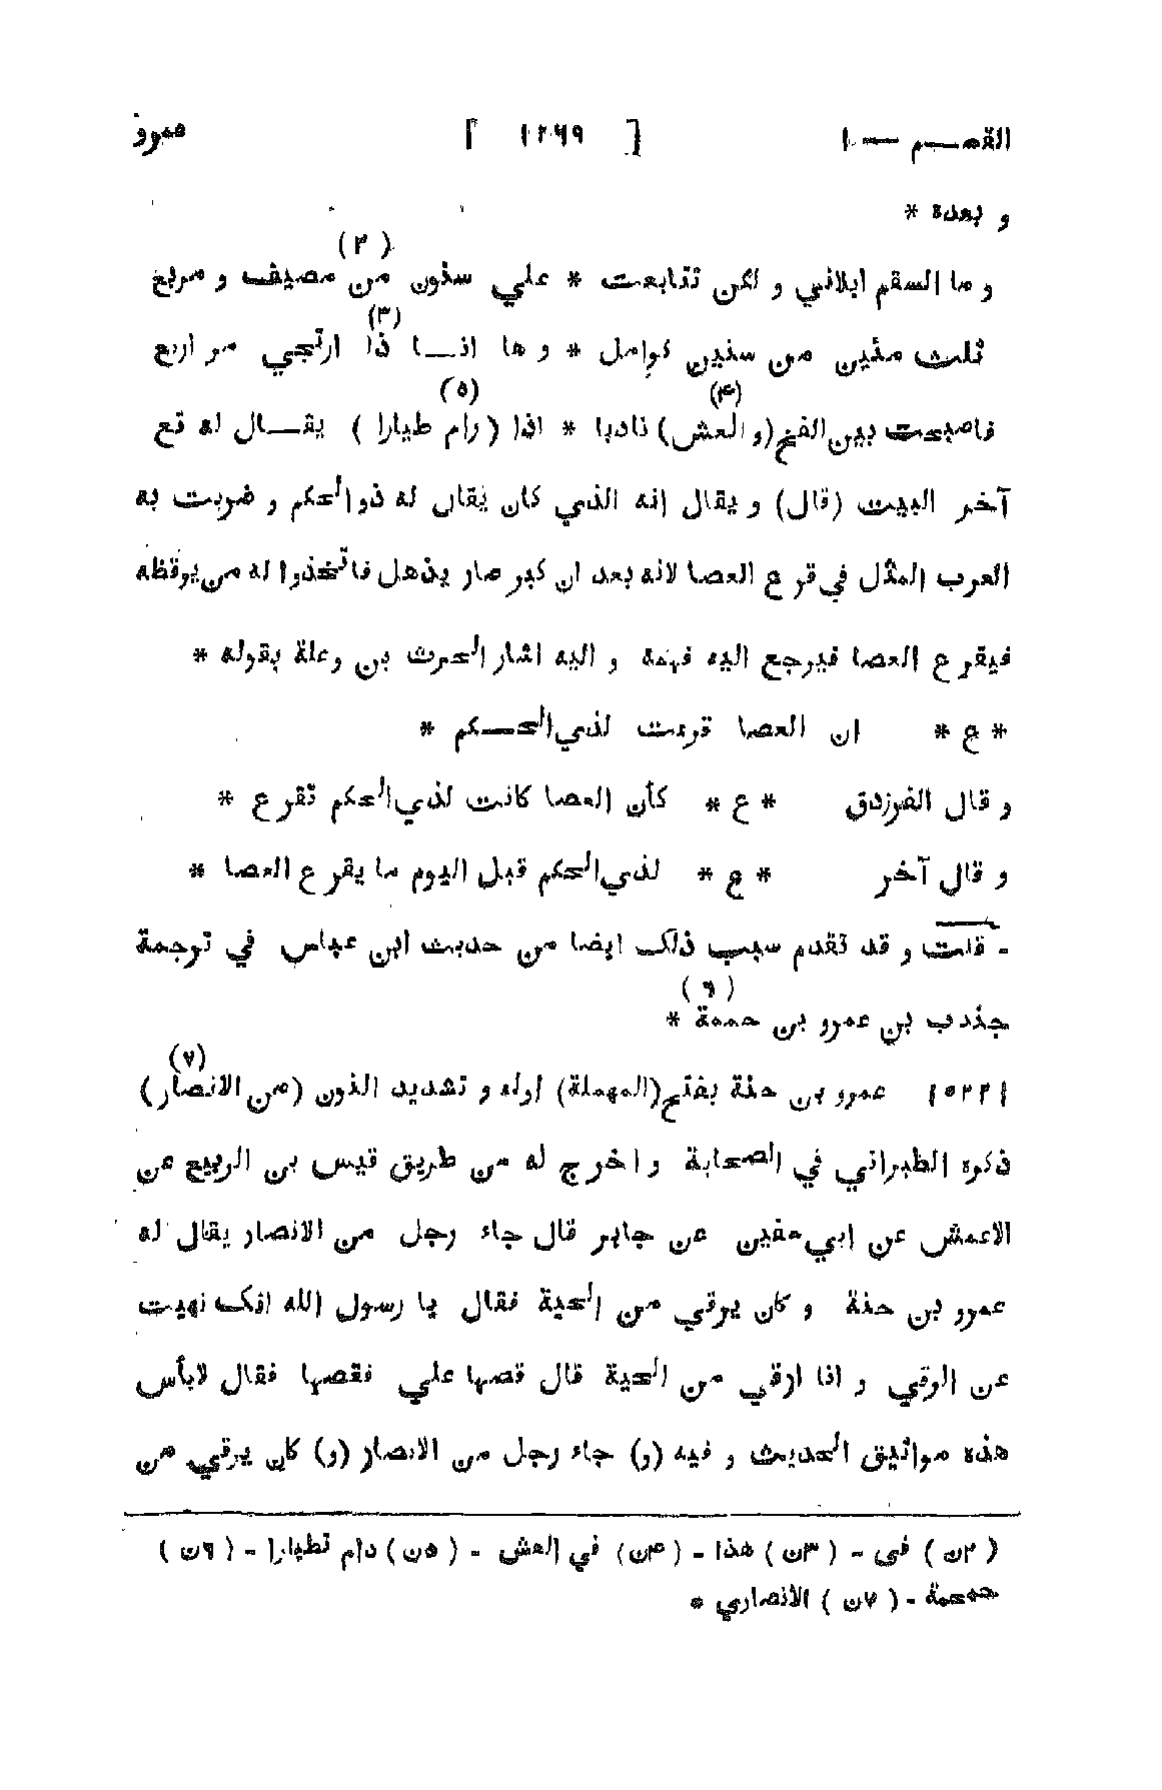 القسم — ١ [ ١٢٦٩ ] عمرو
و بعده *
(٢)
و ما السقم ابلاني و لكن تتابعت * علي سنون من مصيف و مربع
(٣)
ثلث مئين من سنين كوامل * و ها انا ذا ارتجي مر اربع
(٤) (٥)
فاصبحت بين الفخ (و العش) ناديا * اذا (رام طيارا) يقال له قع
آخر البيت (قال) و يقال انه الذي كان يقال له ذو الحكم و ضربت به
العرب المثل في قرع العصا لانه بعد ان كبر صار يذهل فاتخذوا له من يوقظه
فيقرع العصا فيرجع اليه فهمه و اليه اشار الحرث بن وعلة بقوله *
* ع * ان العصا قرعت لذي الحكم *
و قال الفرزدق * ع * كأن العصا كانت لذي الحكم تقرع *
و قال آخر * ع * لذي الحكم قبل اليوم ما يقرع العصا *
- قلت و قد تقدم سبب ذلك ايضا من حديث ابن عباس في ترجمة
(٦)
جندب بن عمرو بن حممة *
(٧)
[٥٢٢١] عمرو بن حنة بفتح (المهملة) اوله و تشديد النون (من الانصار)
ذكره الطبراني في الصحابة و اخرج له من طريق قيس بن الربيع عن
الاعمش عن ابي سفين عن جابر قال جاء رجل من الانصار يقال له
عمرو بن حنة و كان يرقي من الحية فقال يا رسول الله انك نهيت
عن الرقي و انا ارقي من الحية قال قصها علي فقصها فقال لابأس
هذه مواثيق الحديث و فيه (و) جاء رجل من الانصار (و) كان يرقي من
(٢ن) فى - (٣ن) هذا - (٤ن) في العش - (٥ن) دام تطيارا - (٦ن)
حمحمة - (٧ن) الانصاري *